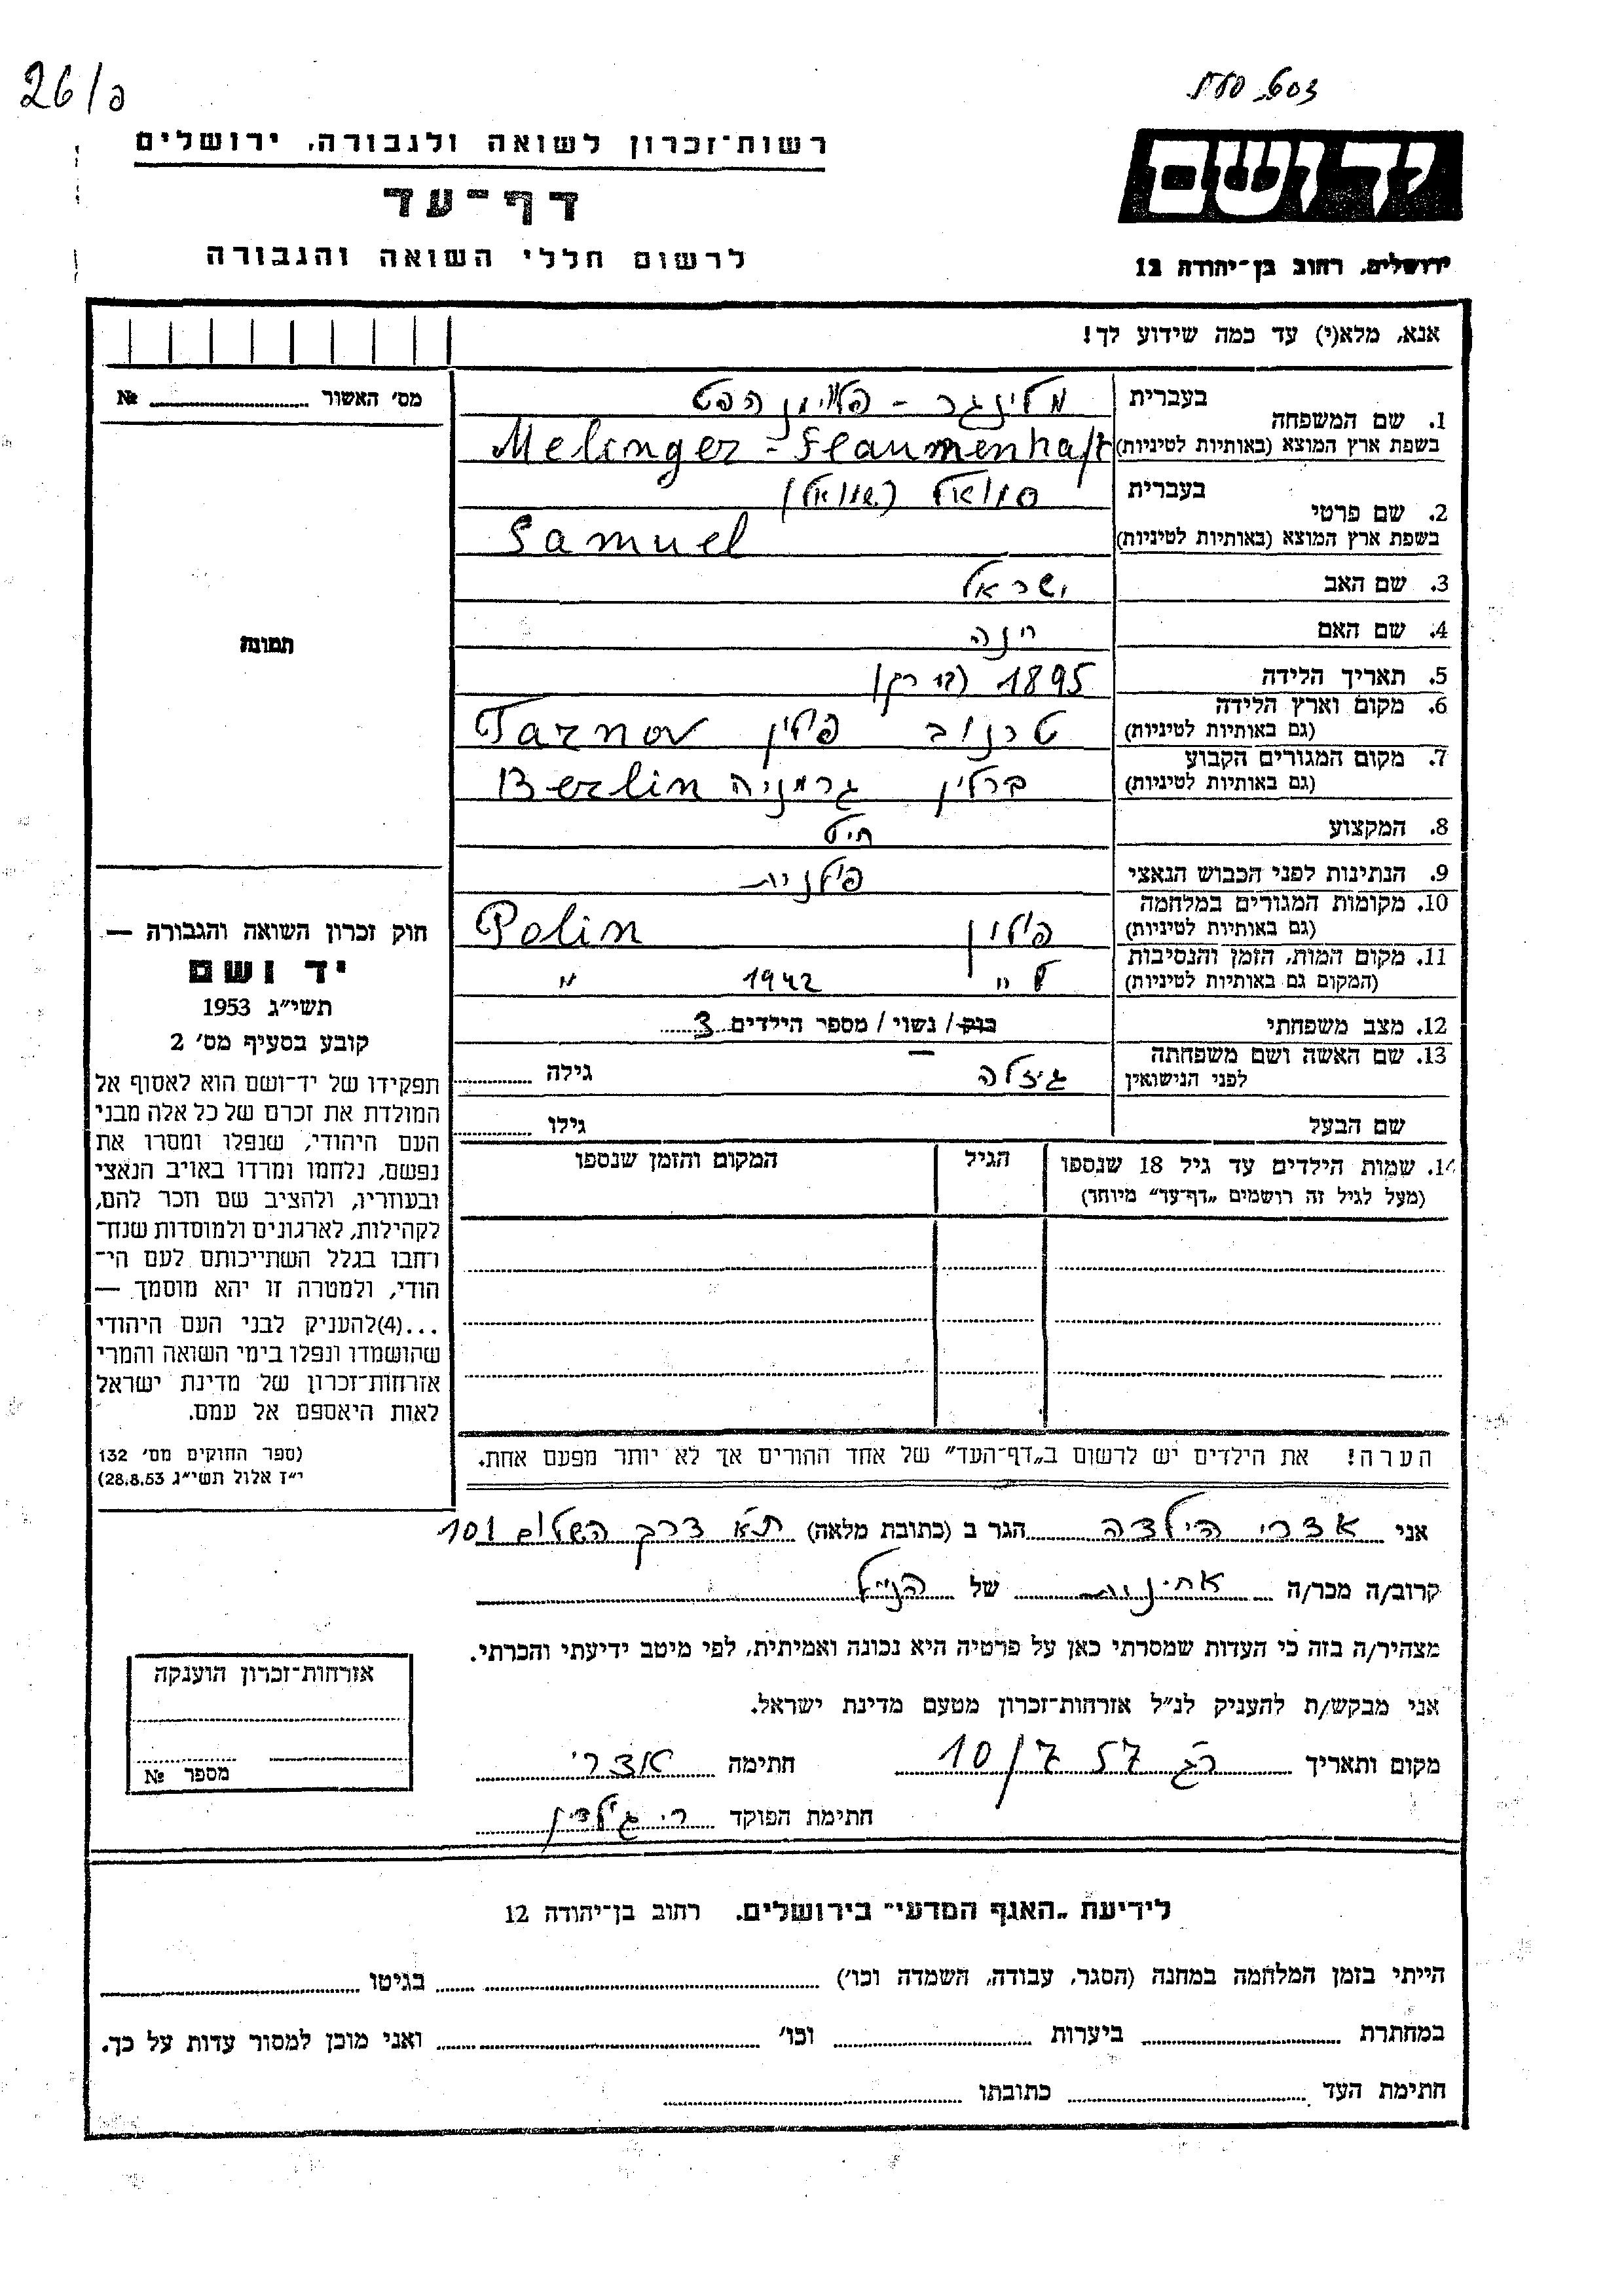 26/פ
רשות־זכרון לשואה ולגבורה, ירושלים
דף־עד
לרשום חללי השואה והגבורה
יד ושם
ירושלים, רחוב בן־יהודה 12
אנא, מלא(י) עד כמה שידוע לך!
מס׳ האשור № 
תמונה
1. שם המשפחה
בעברית מלינגר - פלוימן הפט
בשפת ארץ המוצא (באותיות לטיניות) Melinger - Flaumenhaft
2. שם פרטי
בעברית סמואל (שמואל)
בשפת ארץ המוצא (באותיות לטיניות) Samuel
3. שם האב ישראל
4. שם האם
5. תאריך הלידה 1895
6. מקום וארץ הלידה
(גם באותיות לטיניות) טרנוב פולין Tarnov
7. מקום המגורים הקבוע
(גם באותיות לטיניות) ברלין גרמניה Berlin
8. המקצוע חיט
9. הנתינות לפני הכבוש הנאצי פולנית
10. מקומות המגורים במלחמה
(גם באותיות לטיניות) פולין Polin
11. מקום המות, הזמן והנסיבות
(המקום גם באותיות לטיניות) 1942
12. מצב משפחתי רווק / נשוי / מספר הילדים 3
13. שם האשה ושם משפחתה
לפני הנישואין גיזלה גילה
שם הבעל גילו
14. שמות הילדים עד גיל 18 שנספו
(מעל לגיל זה רושמים „דף־עד״ מיוחד)
הגיל
המקום והזמן שנספו
חוק זכרון השואה והגבורה —
יד ושם
תשי״ג 1953
קובע בסעיף מס׳ 2
תפקידו של יד־ושם הוא לאסוף אל
המולדת את זכרם של כל אלה מבני
העם היהודי, שנפלו ומסרו את
נפשם, נלחמו ומרדו באויב הנאצי
ובעוזריו, ולהציב שם וזכר להם,
לקהילות, לארגונים ולמוסדות שנח־
רחבו בגלל השתייכותם לעם הי־
הודי, ולמטרה זו יהא מוסמך —
...(4)להעניק לבני העם היהודי
שהושמדו ונפלו בימי השואה והמרי
אזרחות־זכרון של מדינת ישראל
לאות היאספם אל עמם.
(ספר החוקים מס׳ 132
י״ז אלול תשי״ג 28.8.53)
הערה! את הילדים יש לרשום ב„דף־העד״ של אחד ההורים אך לא יותר מפעם אחת.
אני אדרי הילדה הגר ב (כתובת מלאה) ת״א דרך השלום 101
קרוב/ה מכר/ה אחינות של הנ״ל
מצהיר/ה בזה כי העדות שמסרתי כאן על פרטיה היא נכונה ואמיתית, לפי מיטב ידיעתי והכרתי.
אני מבקש/ת להעניק לנ״ל אזרחות־זכרון מטעם מדינת ישראל.
מקום ותאריך רג 10/7 57 חתימה אדרי
חתימת הפוקד ר. גולדין
אזרחות־זכרון הוענקה
מספר №
לידיעת „האגף המדעי״ בירושלים, רחוב בן־יהודה 12
הייתי בזמן המלחמה במחנה (הסגר, עבודה, השמדה וכו׳) בגיטו
במחתרת ביערות וכו׳ ואני מוכן למסור עדות על כך.
חתימת העד כתובתו